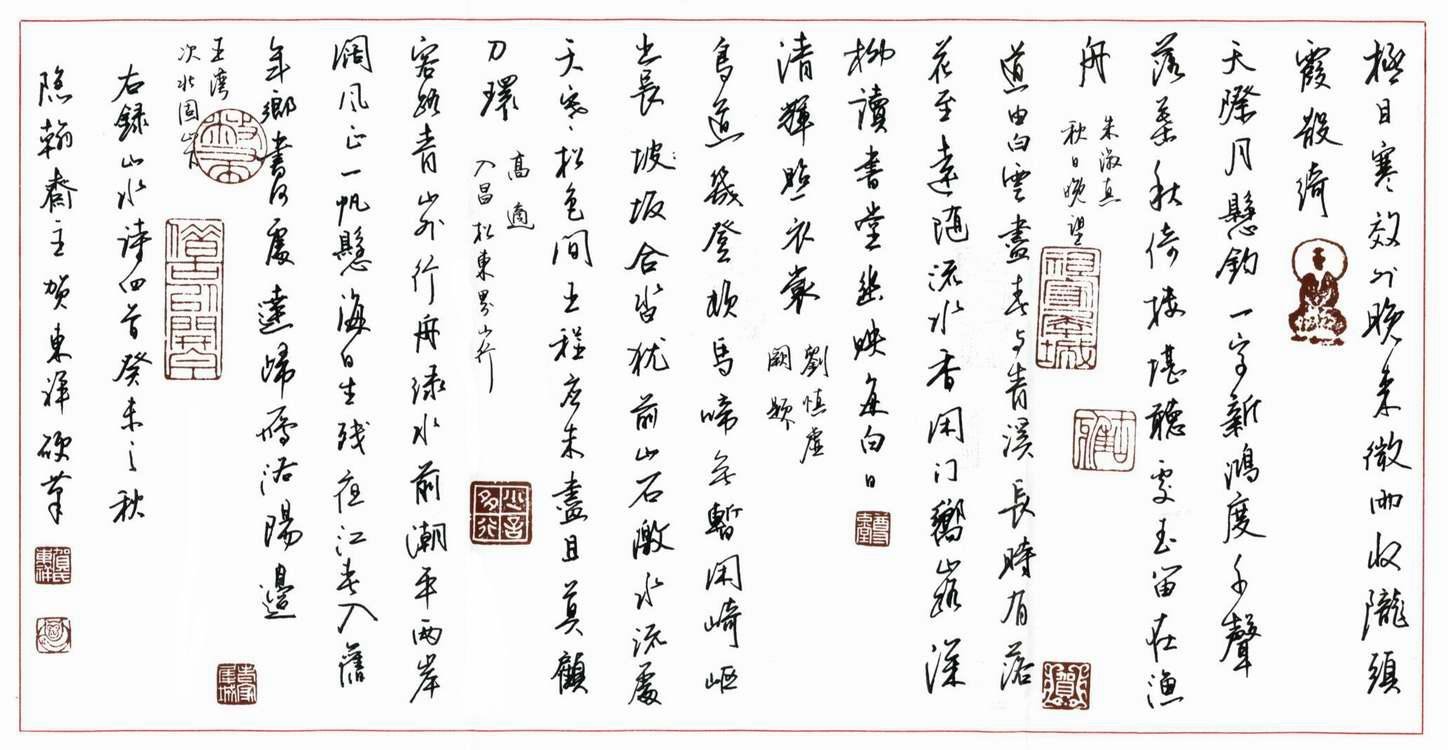 極目寒郊外晚来微雨收隴頭
霞散綺
天際月懸鈎一字新鴻度千聲
落葉秋倚樓堪聽處玉笛在漁
舟
朱淑真
秋日晚望
道由白雲盡春与青溪長時有落
花至遠隨流水香闲门嚮山路深
柳讀書堂幽映每白日
清輝照衣裳
劉慎虛
闕題
鳥道幾登頓馬啼無暫闲崎嶇
出長坡坂合沓犹前山石激水流處
天寒寒松色間王程应未盡且莫顧
刀環
高適
入昌松東界山行
客路青山外行舟绿水前潮平兩岸
阔风正一帆懸海日生残夜江春入舊
年鄉書何處達歸雁洛陽邊
王灣
次北固山下
右録山水诗四首癸未之秋
隐翰齋主賀東祥硬筆
少言多行
賀氏東祥